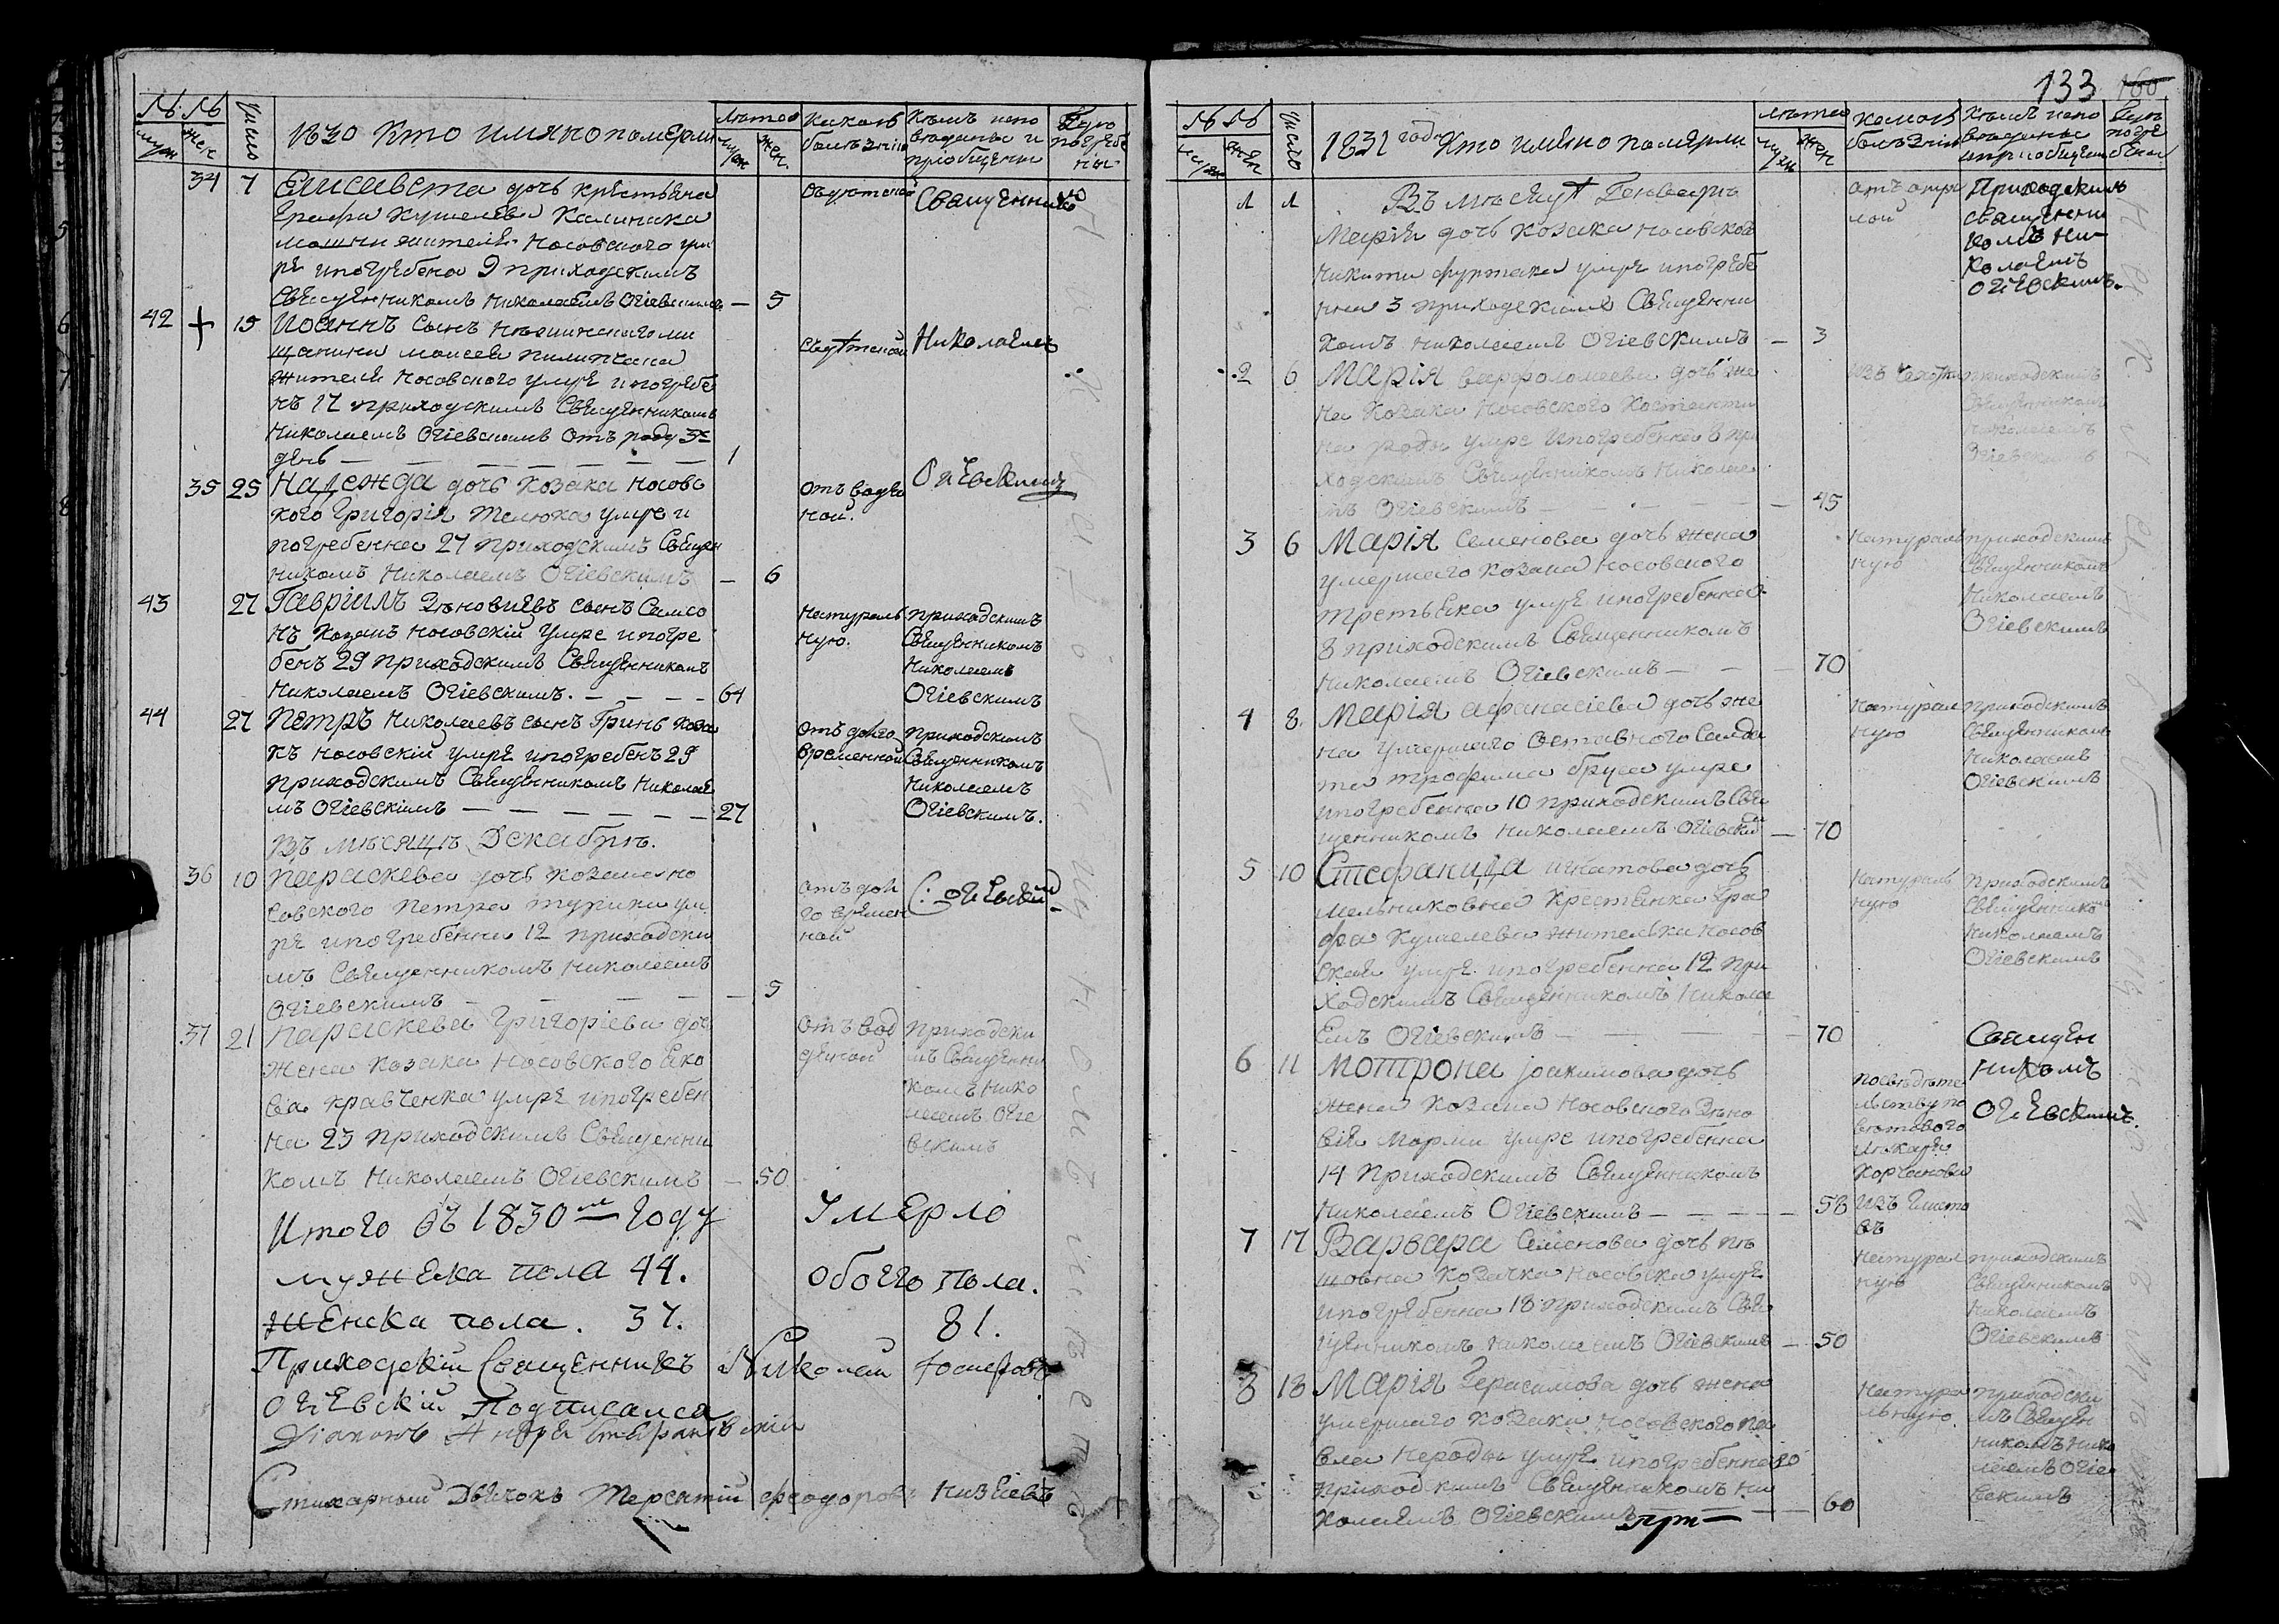 133 160
№ № Число 1830 Кто имяно померли лѣтъ Какою болѣзнію Кѣмъ испо вѣданы и пріобщены Гдѣ погребе ны
муж жен муж. жен.
34 7 Елисавета дочь крестьяна
Графа Кушелева Калиника
жителя Носовского ум
ре и погребена 9 приходскимъ
Священникомъ Николаемъ Огіевскимъ — 5
Священникъ
42 15 Иоаннъ сынъ Нѣжинскаго ми
щанина Моисея Пилипчака
жителя Носовского умре и погребе
нъ 17 приходскимъ Священникомъ
Николаемъ Огіевскимъ отъ роду
день — — — — — — 1
Николаемъ
35 25 Надежда дочь козака Носовс
кого Григорія Телюка умре и
погребенна 27 приходскимъ Священ
никомъ Николаемъ Огіевскимъ — 6
отъ водян
ной.
Огіевскимъ
43 27 Гавріилъ Зѣновіевъ сынъ Самсо
нъ козакъ Носовскій умре и погре
бенъ 29 приходскимъ Священникомъ
Николаемъ Огіевскимъ. — — — — 64
натураль
ную.
приходскимъ
Священникомъ
Николаемъ
Огіевскимъ
44 27 Петръ Николаевъ сынъ Гринь коза
къ Носовскій умре и погребенъ 29
приходскимъ Священникомъ Николае
мъ Огіевскимъ — — — — — — 27
отъ долго
временной
приходскимъ
Священникомъ
Николаемъ
Огіевскимъ.
Въ мѣсяцѣ Декабрѣ.
36 10 Параскева дочь козака но
совского Петра Турика ум
ре и погребенна 12 приходски
мъ Священникомъ Николаемъ
Огіевскимъ — — — — — 5
отъ дол
го времен
ной
С: Огіевскій
37 21 Параскева Григоріева доч
жена козака Носовского Яко
ва Кравченка умре и погребен
на 23 приходскимъ Священни
комъ Николаемъ Огіевскимъ — 50
отъ вод
дяной
приходски
мъ Священни
комъ Нико
лаемъ Огіе
вскимъ
Итого въ 1830 м Году Умерло
мужеска пола 44. Обоего пола.
Женска пола. 37. 81.
Приходскій Священникъ Николай Іосифовъ
Огіевскій Подписался
Діаконъ Андрей
Стихарный Дьячокъ Терентій Феодоровъ Низіевъ
№ № Число 1831 году Кто имяно померли лѣтъ Какою болѣзнію Кѣмъ испо вѣданы и пріобщены Гдѣ погре бены
муж жен муж жен
1 1 Въ мѣсяцѣ Генварѣ
Марія дочь козака Носовскаго
Никити Фуртака умре и погребе
нна 3 приходскимъ Священни
комъ Николаемъ Огіевскимъ — 3
Приходскимъ
священни
комъ Ни
колаемъ
Огіевскимъ.
2 6 Марія Варфоломеева дочь же
на козака Носовского Костянти
на умре и погребенна 8 при
ходскимъ Священникомъ Николае
мъ Огіевскимъ — — — — 45
изъ чахотки
приходскимъ
Священникомъ
Николаемъ
Огіевскимъ
3 6 Марія Семенова дочь жена
умершаго козака Носовского
Третяка умре и погребенна
8 приходскимъ Священникомъ
Николаемъ Огіевскимъ — — — 70
натураль
ную
приходскимъ
Священникомъ
Николаемъ
Огіевскимъ
4 8 Марія Афанасіева дочь же
на умершаго отставного салда
та Трофима Бруса умре
и погребенна 10 приходскимъ Свя
щенникомъ Николаемъ Огіевским — 70
натурал
ную
приходскимъ
Священникомъ
Николаемъ
Огіевскимъ
5 10 Стефанида Игнатова дочь
Мельниковна крестьянка Гра
фа Кушелева жителька Носов
ская умре и погребенна 12 при
ходскимъ Священникомъ Никола
емъ Огіевскимъ — — — 70
натураль
ную
приходскимъ
Священнико
Николаемъ
Огіевскимъ
6 11 Мотрона Іоакимова дочь
жена козака Носовского Зѣно
вія умре и погребенна
14 приходскимъ Священникомъ
Николаемъ Огіевскимъ — — — — — 58
по свѣдѣте
льству по
вѣтового
лѣкаря
Священ
никомъ
Огіевскимъ.
7 17 Варвара Семенова дочь
козачка Носовска умре
и погребенна 18 приходскимъ Свя
щенникомъ Николаемъ Огіевскимъ — 50
натурал
ную
приходскимъ
Священникомъ
Николаемъ
Огіевскимъ
8 18 Марія Герасимова дочь жена
умершаго козака Носовского Па
вла Нероды умре и погребенна 20
приходскимъ Священникомъ Ни
колаемъ Огіевскимъ — — 60
натура
льную.
приходски
мъ Священ
никомъ Нико
лаемъ Огіе
вскимъ